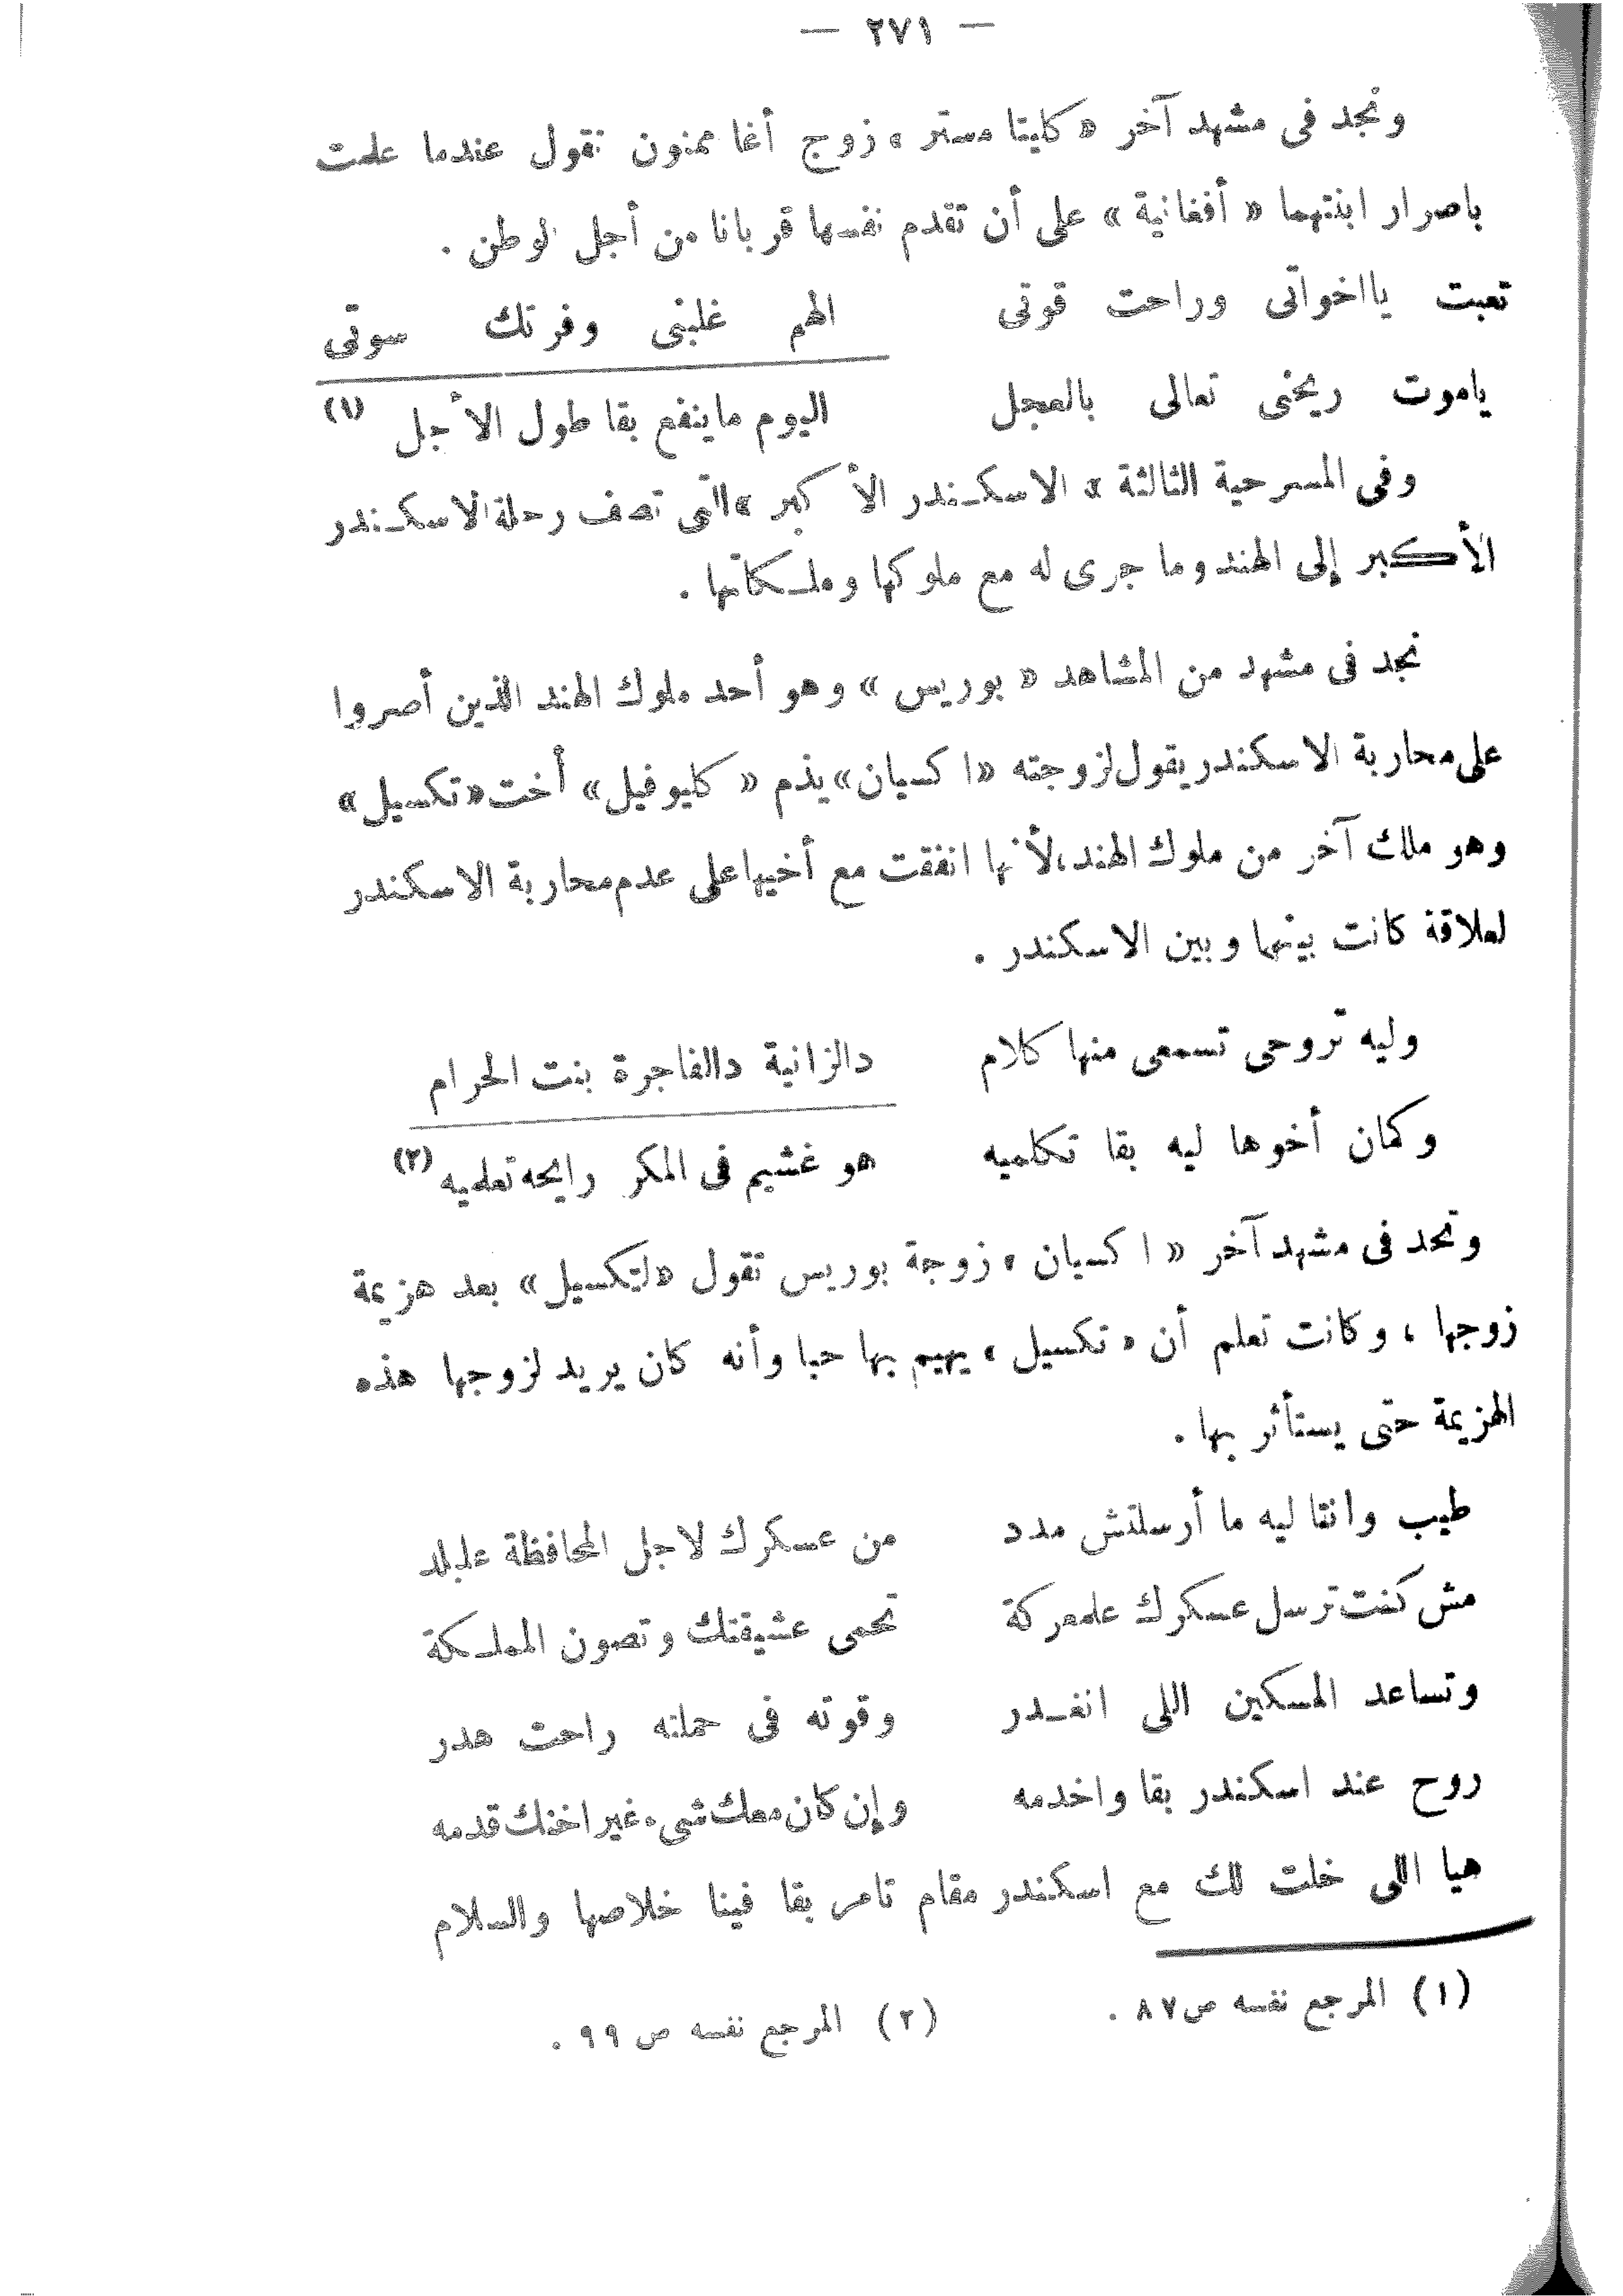 — ٢٧١ —
ونجد فى مشهد آخر « كليتا مستر » زوج أغا ممنون تقول عندما علمت
باصرار ابنتهما « أفغانية » على أن تقدم نفسها قربانا من أجل الوطن .
تعبت يااخواتى وراحت قوتى الهم غلبنى وفرتك سوتى
ياموت ريحنى تعالى بالعجل اليوم ماينفع بقا طول الأجل (١)
وفى المسرحية الثالثة « الاسكندر الأكبر » التى تصف رحلة الاسكندر
الأكبر إلى الهند وما جرى له مع ملوكها وملكاتها .
نجد فى مشهد من المشاهد « بوريس » وهو أحد ملوك الهند الذين أصروا
على محاربة الاسكندر يقول لزوجته «اكسيان» يذم « كليوفيل» أخت «تكسيل»
وهو ملك آخر من ملوك الهند، لأنها اتفقت مع أخيها على عدم محاربة الاسكندر
لعلاقة كانت بينها وبين الاسكندر .
وليه تروحى تسمعى منها كلام دالزانية دالفاجرة بنت الحرام
وكمان أخوها ليه بقا تكلميه هو غشيم فى المكر رايحه تعلميه (٢)
ونجد فى مشهد آخر « اكسيان » زوجة بوريس تقول «لتكسيل» بعد هزيمة
زوجها ، وكانت تعلم أن « تكسيل » يهيم بها حبا وأنه كان يريد لزوجها هذه
الهزيمة حتى يستأثر بها .
طيب وانتا ليه ما أرسلتش مدد من عسكرك لاجل المحافظة علبلد
مش كنت ترسل عسكرك علمعركة تحمى عشيقتك وتصون المملكة
وتساعد المسكين اللى انغدر وقوته فى حملته راحت هدر
روح عند اسكندر بقا واخدمه وإن كان معك شىء غير اختك قدمه
هيا اللى خلت لك مع اسكندر مقام تامر بقا فينا خلاصها والسلام
(١) المرجع نفسه ص ٨٧ . (٢) المرجع نفسه ص ٩٩ .